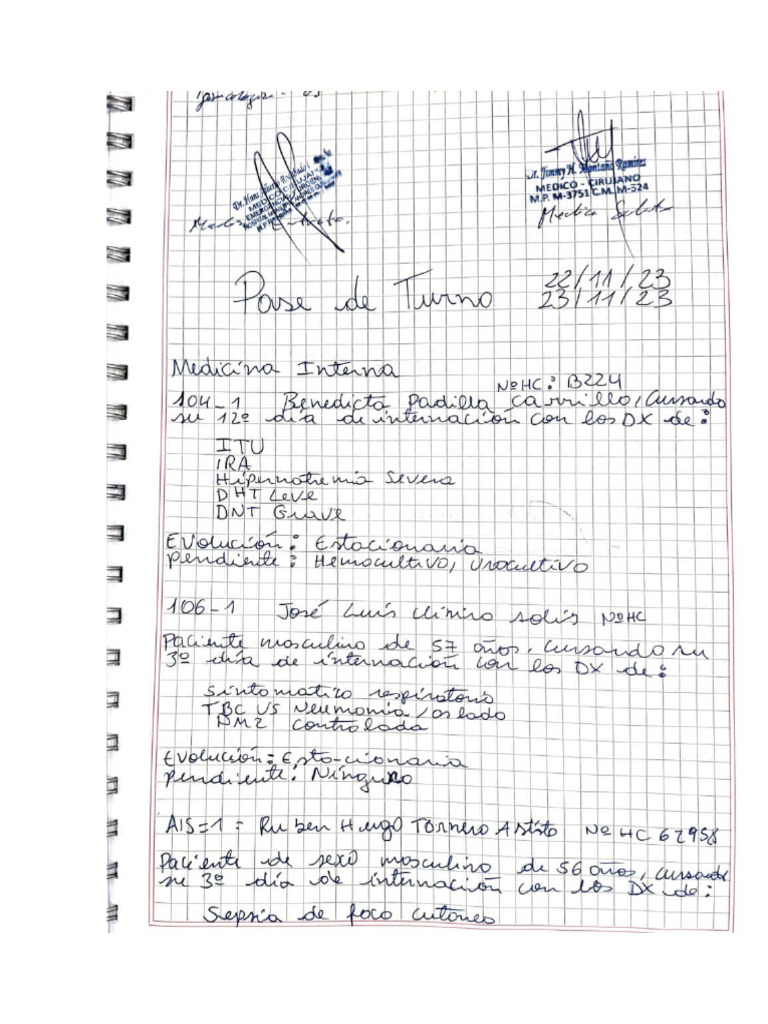 MEDICO CIRUJANO
EMERGENCIAS
Dr. Jimmy H. Montaño Ramirez
MEDICO - CIRUJANO
M.P. M-3751 C.M. M-524
Pase de Turno 22/11/23
23/11/23
Medicina Interna
NºHC: B224
104-1 Benedicta Padilla Carrillo, Cursando
su 12º día de internación con los DX de:
ITU
IRA
Hipernatremia Severa
DHT Leve
DNT Grave
Evolución: Estacionaria
Pendiente: Hemocultivo, Urocultivo
106-1 José Luis solis NºHC
Paciente masculino de 57 años, cursando su
3º día de internación con los DX de:
Sintomatico respiratorio
TBC VS Neumonia / aislado
DM2 controlada
Evolución: Estacionaria
Pendiente: Ninguno
AIS=1 = Ruben Hugo Tornero NºHC 62958
Paciente de sexo masculino de 56 años, cursando
su 3º día de internación con los DX de:
Sepsia de foco cutoneo